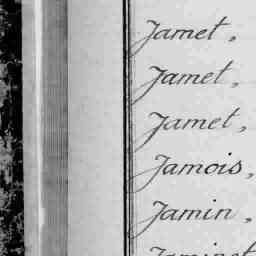 Jamet,
Jamet,
Jamet,
Jamois,
Jamin,
Jaminet